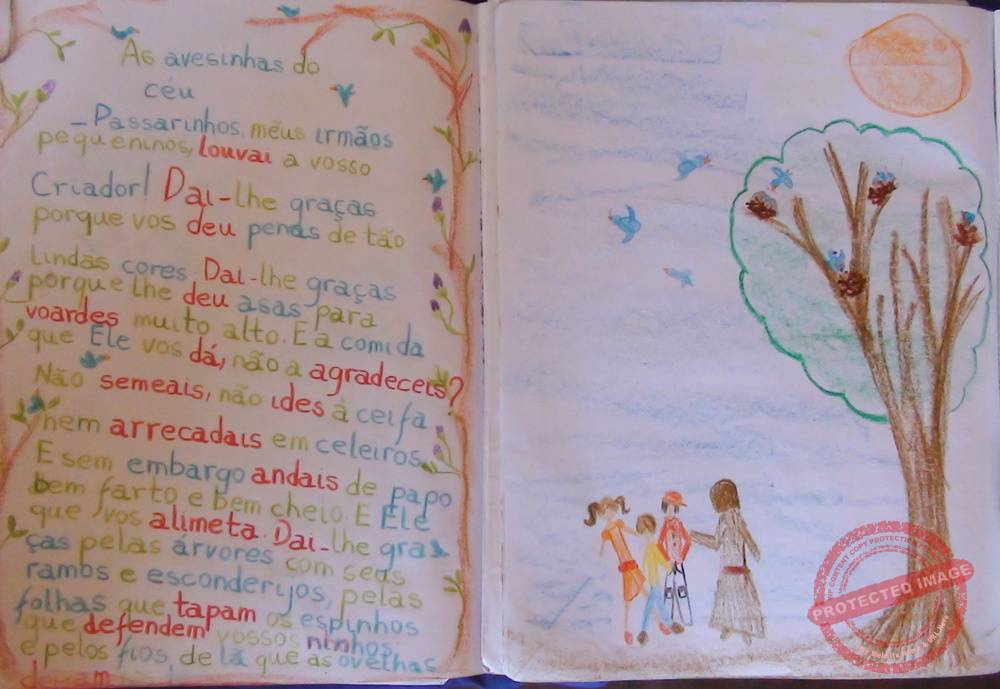 As avesinhas do
céu
– Passarinhos, meus irmãos
pequeninos, louvai a vosso
Criador! Dai-lhe graças
porque vos deu penas de tão
lindas cores. Dai-lhe graças
porque lhe deu asas para
voardes muito alto. E a comida
que Ele vos dá, não a agradeceis?
Não semeais, não ides à ceifa
nem arrecadais em celeiros.
E sem embargo andais de papo
bem farto e bem cheio. E Ele
que vos alimeta. Dai-lhe gra
ças pelas árvores com seus
rambos e esconderijos, pelas
folhas que tapam os espinhos
que defendem vossos ninhos
e pelos fios, de lã que as ovelhas
deixam
CONTENT COPY PROTECTED
PROTECTED IMAGE